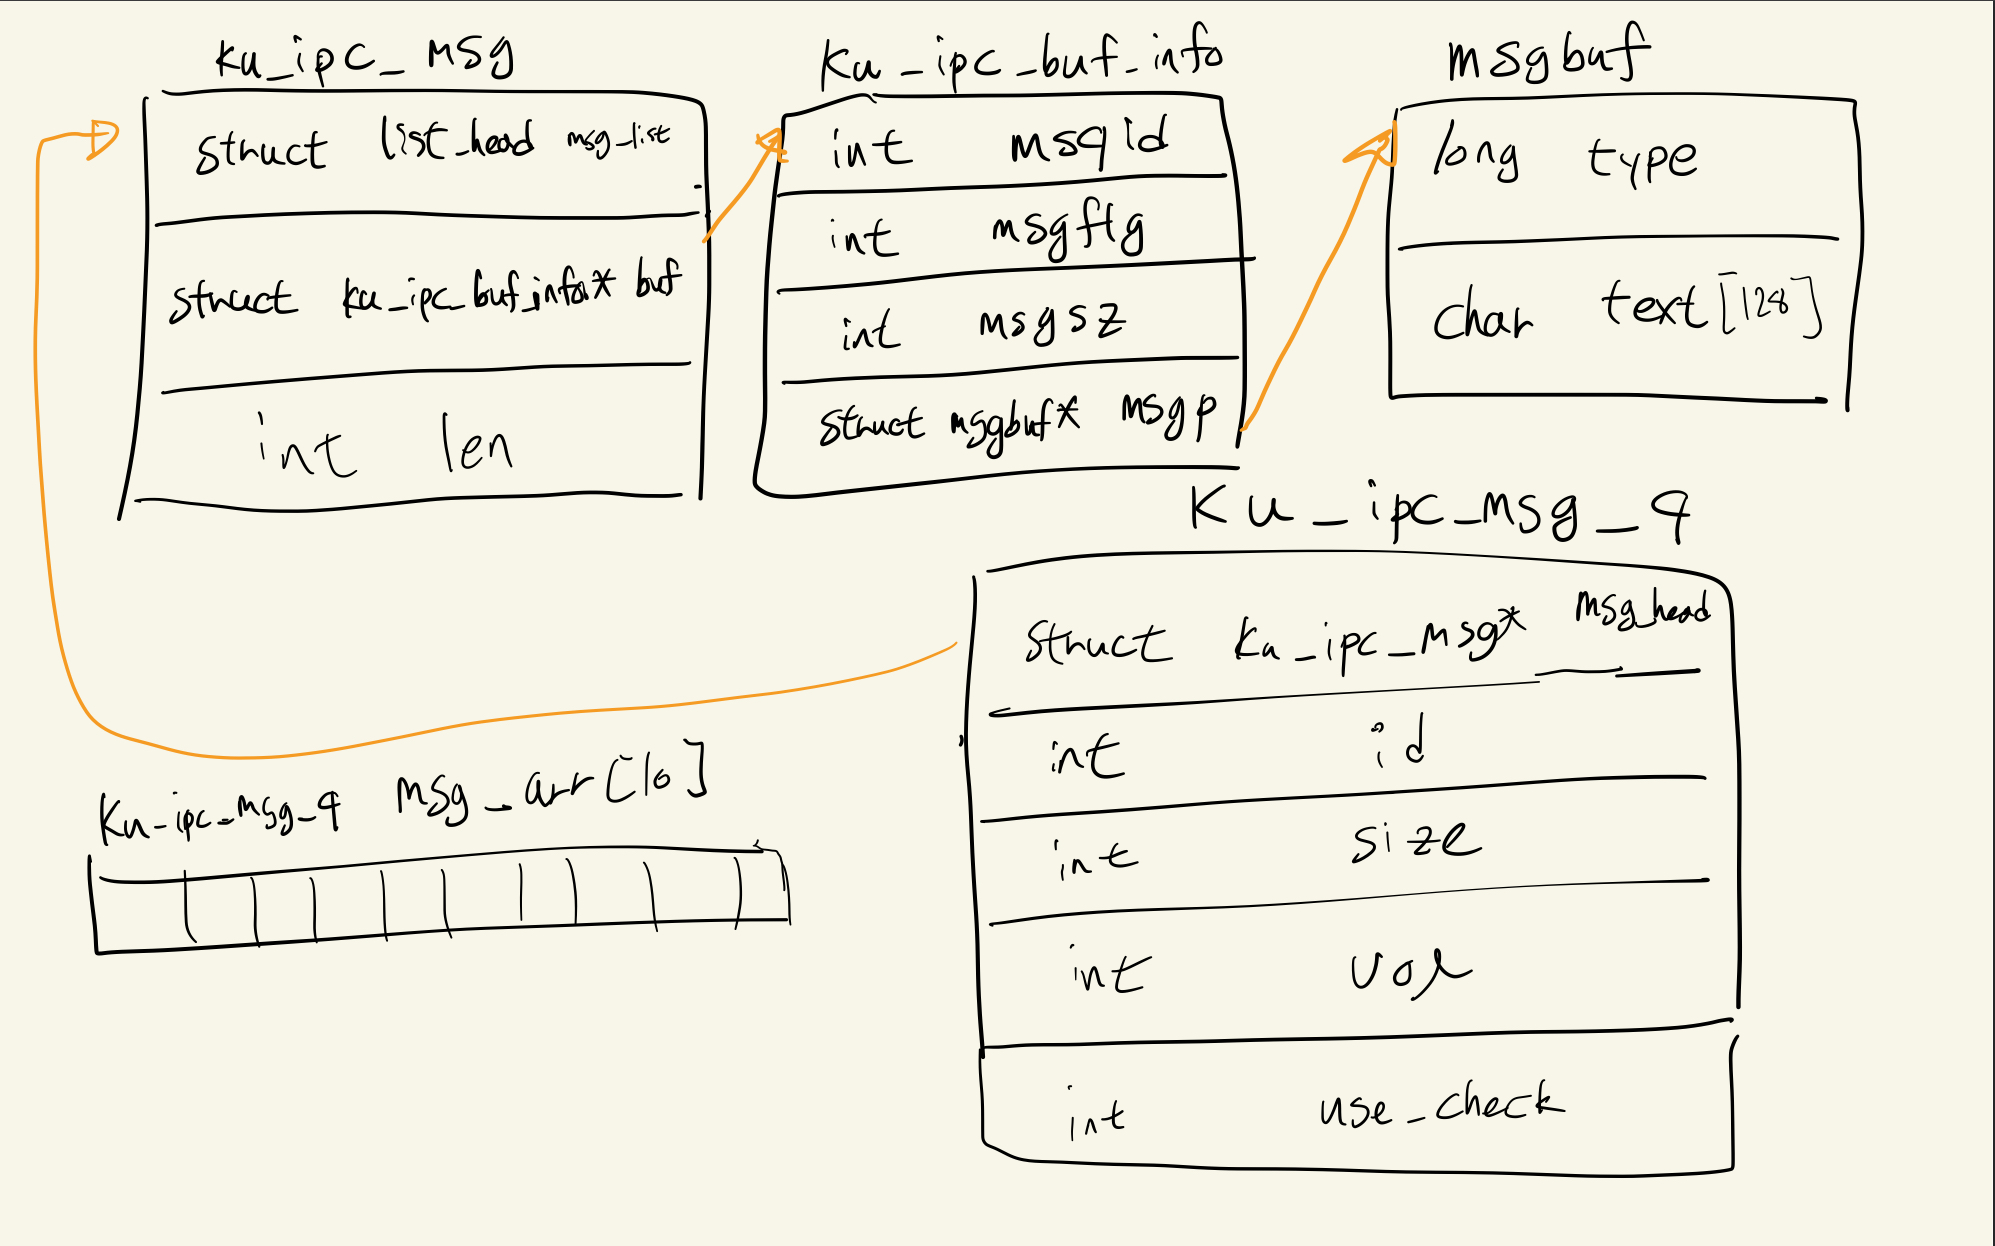 ku_ipc_msg
struct list_head msg_list
struct ku_ipc_buf_info* buf
int len
ku_ipc_buf_info
int msqid
int msgflg
int msgsz
struct msgbuf* msgp
msgbuf
long type
char text[128]
ku_ipc_msg_q
struct ku_ipc_msg* msg_head
int id
int size
int vol
int use_check
ku_ipc_msg_q msg_arr[10]